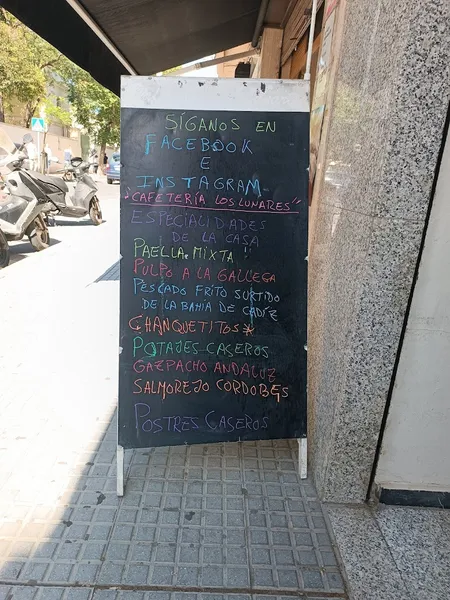 SÍGANOS EN
FACEBOOK
E
INSTAGRAM
"CAFETERÍA LOS LUNARES"
ESPECIALIDADES
DE LA CASA
PAELLA MIXTA!!
PULPO A LA GALLEGA
PESCADO FRITO SURTIDO
DE LA BAHIA DE CÁDIZ
CHANQUETITOS*
POTAJES CASEROS
GAZPACHO ANDALUZ
SALMOREJO CORDOBÉS
POSTRES CASEROS